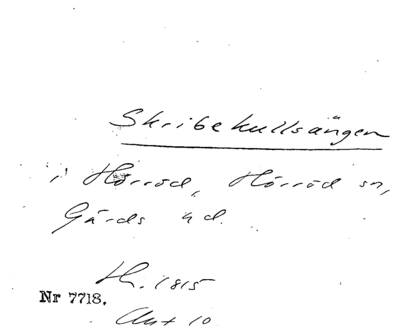 Skribekullsängen
i Hörröd, Hörröd sn,
Gärds hd.
H. 1815
Nr 7718.
Akt 10